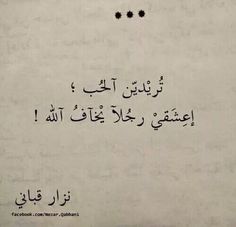 ***
تُريْديّن آلحُب ؛
إعِشَقيْ رجُلآ يْخآفُ آلله !
نزار قباني
facebook.com/Nezar.Qabbani